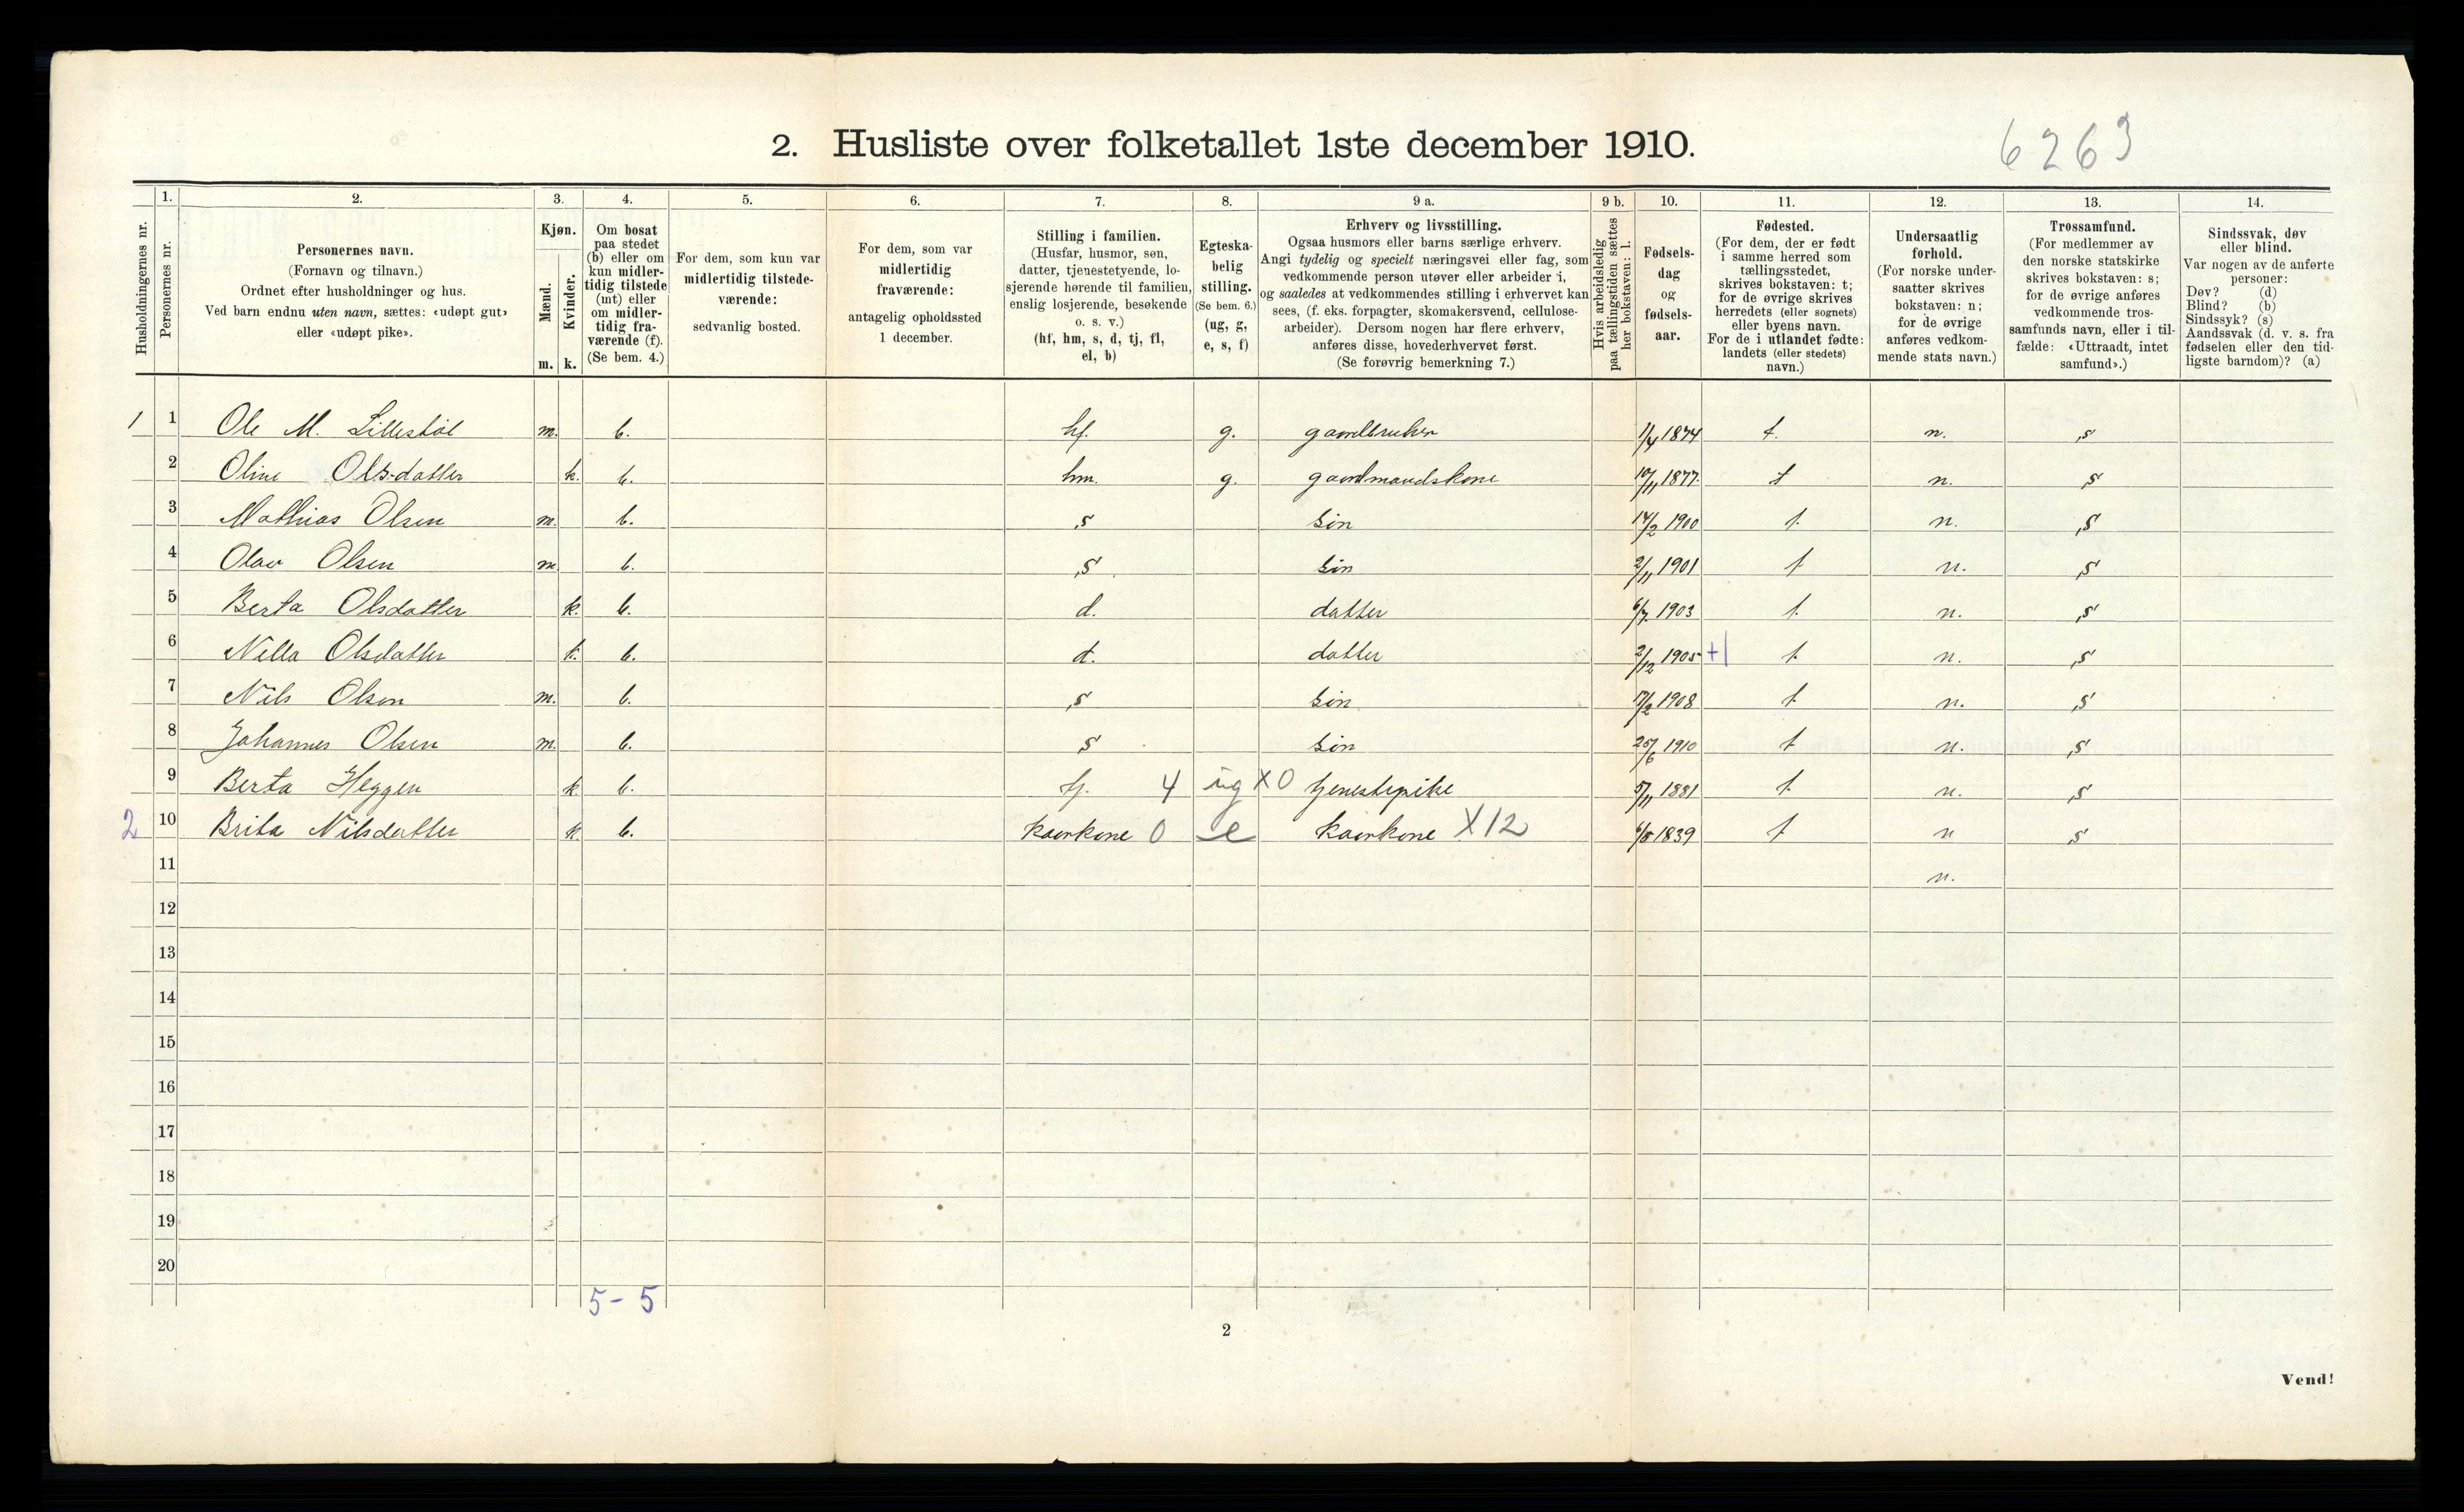 2. Husliste over folketallet 1ste december 1910.
6263
Husholdningernes nr.
1.
Personernes nr.
2.
Personernes navn.
(Fornavn og tilnavn.)
Ordnet efter husholdninger og hus.
Ved barn endnu uten navn, sættes: «udøpt gut»
eller «udøpt pike».
3.
Kjøn.
Mænd.
Kvinder.
m. k.
4.
Om bosat
paa stedet
(b) eller om
kun midler-
tidig tilstede
(mt) eller
om midler-
tidig fra-
værende (f).
(Se bem. 4.)
5.
For dem, som kun var
midlertidig tilstede-
værende:
sedvanlig bosted.
6.
For dem, som var
midlertidig
fraværende:
antagelig opholdssted
1 december.
7.
Stilling i familien.
(Husfar, husmor, søn,
datter, tjenestetyende, lo-
sjerende hørende til familien,
enslig losjerende, besøkende
o. s. v.)
(hf, hm, s, d, tj, fl,
el, b)
8.
Egteska-
belig
stilling.
(Se bem. 6.)
(ug, g,
e, s, f)
9 a.
Erhverv og livsstilling.
Ogsaa husmors eller barns særlige erhverv.
Angi tydelig og specielt næringsvei eller fag, som
vedkommende person utøver eller arbeider i,
og saaledes at vedkommendes stilling i erhvervet kan
sees, (f. eks. forpagter, skomakersvend, cellulose-
arbeider). Dersom nogen har flere erhverv,
anføres disse, hovederhvervet først.
(Se forøvrig bemerkning 7.)
9 b.
Hvis arbeidsledig
paa tællingstiden sættes
her bokstaven: l.
10.
Fødsels-
dag
og
fødsels-
aar.
11.
Fødested.
(For dem, der er født
i samme herred som
tællingsstedet,
skrives bokstaven: t;
for de øvrige skrives
herredets (eller sognets)
eller byens navn.
For de i utlandet fødte:
landets (eller stedets)
navn.)
12.
Undersaatlig
forhold.
(For norske under-
saatter skrives
bokstaven: n;
for de øvrige
anføres vedkom-
mende stats navn.)
13.
Trossamfund.
(For medlemmer av
den norske statskirke
skrives bokstaven: s;
for de øvrige anføres
vedkommende tros-
samfunds navn, eller i til-
fælde: «Uttraadt, intet
samfund».)
14.
Sindssvak, døv
eller blind.
Var nogen av de anførte
personer:
Døv? (d)
Blind? (b)
Sindssyk? (s)
Aandssvak (d. v. s. fra
fødselen eller den tid-
ligste barndom)? (a)
1 1 Ole M. Lillestøl m. b. hf. g. gaardbruker 11/4 1874 t. n. s
2 Oline Olsdatter k. b. hm. g. gaardmandskone 10/11 1877. t n. s
3 Mathias Olsen m. b. s søn 14/2 1900 t. n. s
4 Olav Olsen m. b. s. søn 2/11 1901 t n. s
5 Berta Olsdatter k. b. d. datter 6/7. 1903 t. n. s
6 Nilla Olsdatter k. b. d. datter 2/12 1905 +1 t. n. s
7 Nils Olsen m. b. s søn 1908 t. n. s
8 Johannes Olsen m. b. s søn 25/6 1910 t. n. s
9 Berta Heggen k. b. tj. 4 ug X0 tjenestepike 5/11 1881 t. n. s
2 10 Brita Nilsdatter k. b. kaarkone 0 e kaarkone X12 6/5 1839 t n s
11 n.
12
13
14
15
16
17
18
19
20
5 - 5
2
Vend!